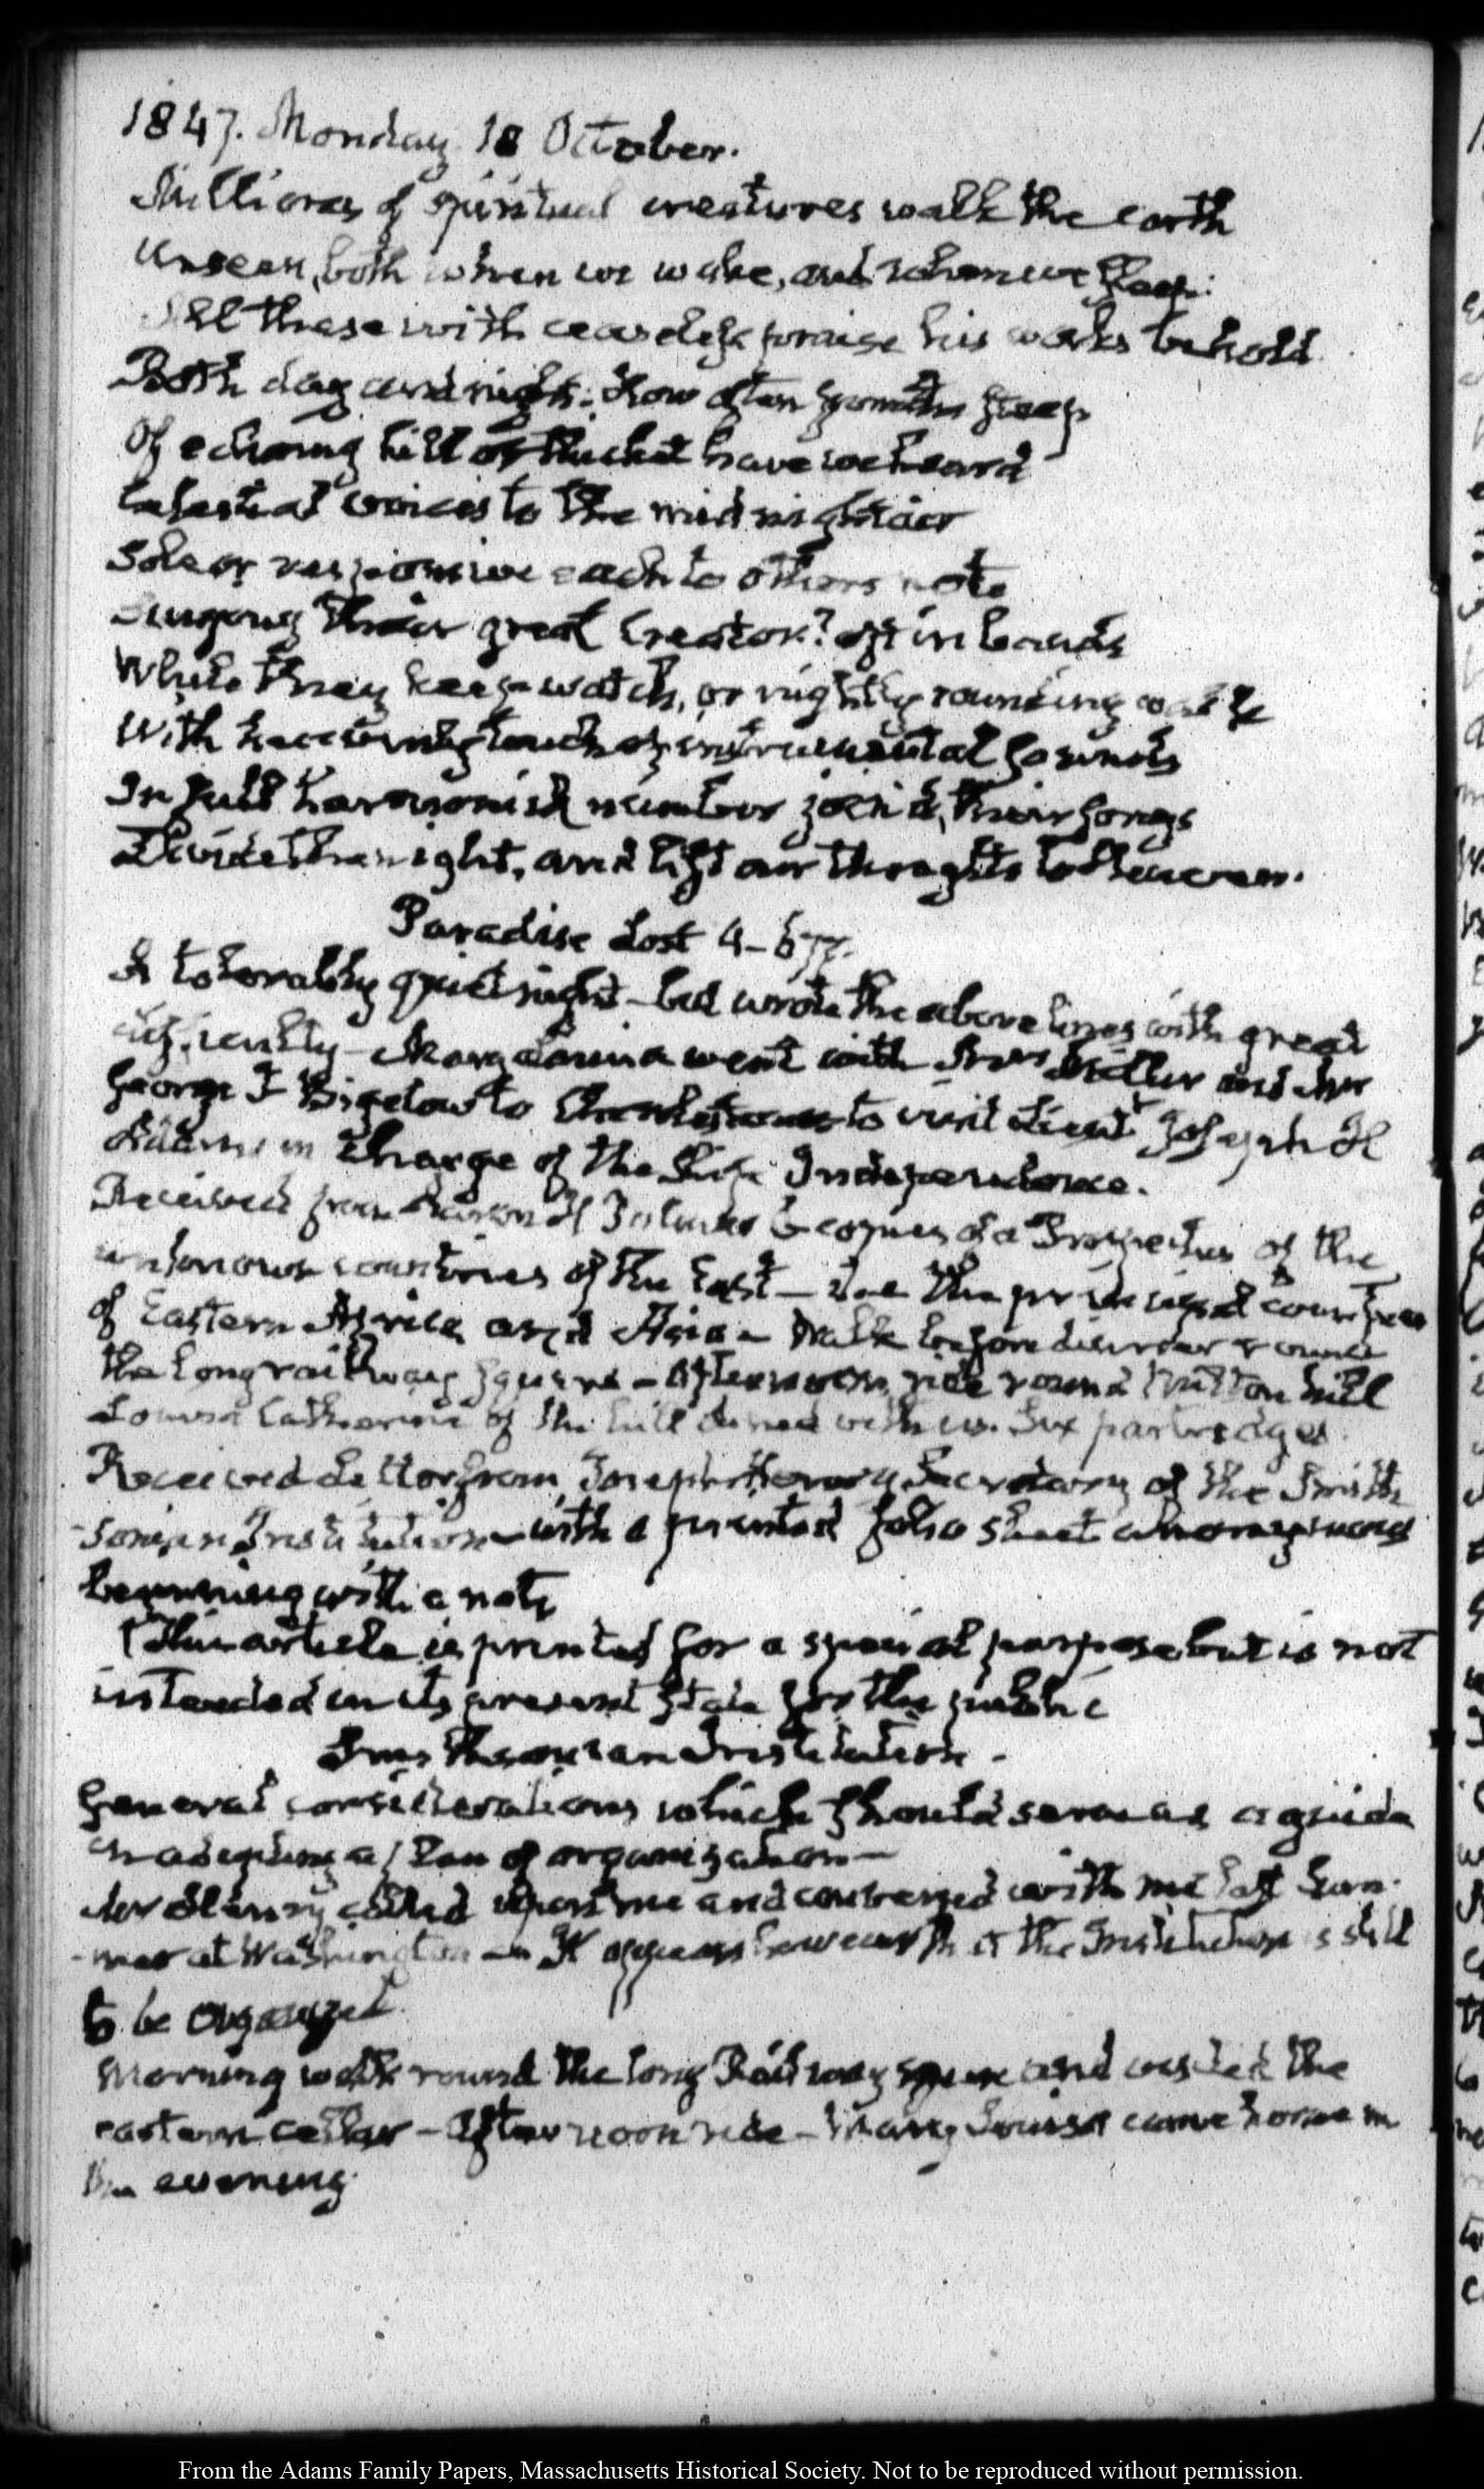 1847. Monday 18 October.
Millions of spiritual creatures walk the earth
Unseen, both when we wake, and when we sleep:
All these with ceaseless praise his works behold
Both day and night: how often from the steep
Of echoing hill or thicket have we heard
Celestial voices to the midnight air
Sole or responsive each to others note
Singing their great Creator? oft in bands
While they keep watch, or nightly rounding walk
With heavenly touch of instrumental sounds
In full harmonick number join'd, their songs
Divide the night, and lift our thoughts to Heaven.
Paradise Lost 4-677.
A tolerably quiet night - but wrote the above lines with great
difficulty - Mary Louisa went with Mrs Miller and Mr
George T Bigelow to Charlestown to visit Lieut Joseph H
Adams in charge of the Ship Independence.
Received from Aaron H Palmer copies of a Prospectus of the
unknown countries of the East - the principal countries
of Eastern Africa and Asia - Walk before dinner round
the long railway square - Afternoon ride round Milton hill
Louisa Catherine of the hill dined with us. Six partridges.
Received Letter from Joseph Henry Secretary of the Smith-
-sonian Institution - with a printed folio sheet
beginning with a note
(This article is printed for a special purpose but is not
intended in its present state for the public
Smithsonian Institution -
General considerations which should serve as a guide
in adopting a plan of organization -
Mr Henry called upon me and conversed with me last Sum-
-mer at Washington - It appears however that the Institution is still
to be organized.
Morning walk round the long Railway square and visited the
eastern cellar - Afternoon ride - Mary Louisa came home in
the evening.
From the Adams Family Papers, Massachusetts Historical Society. Not to be reproduced without permission.